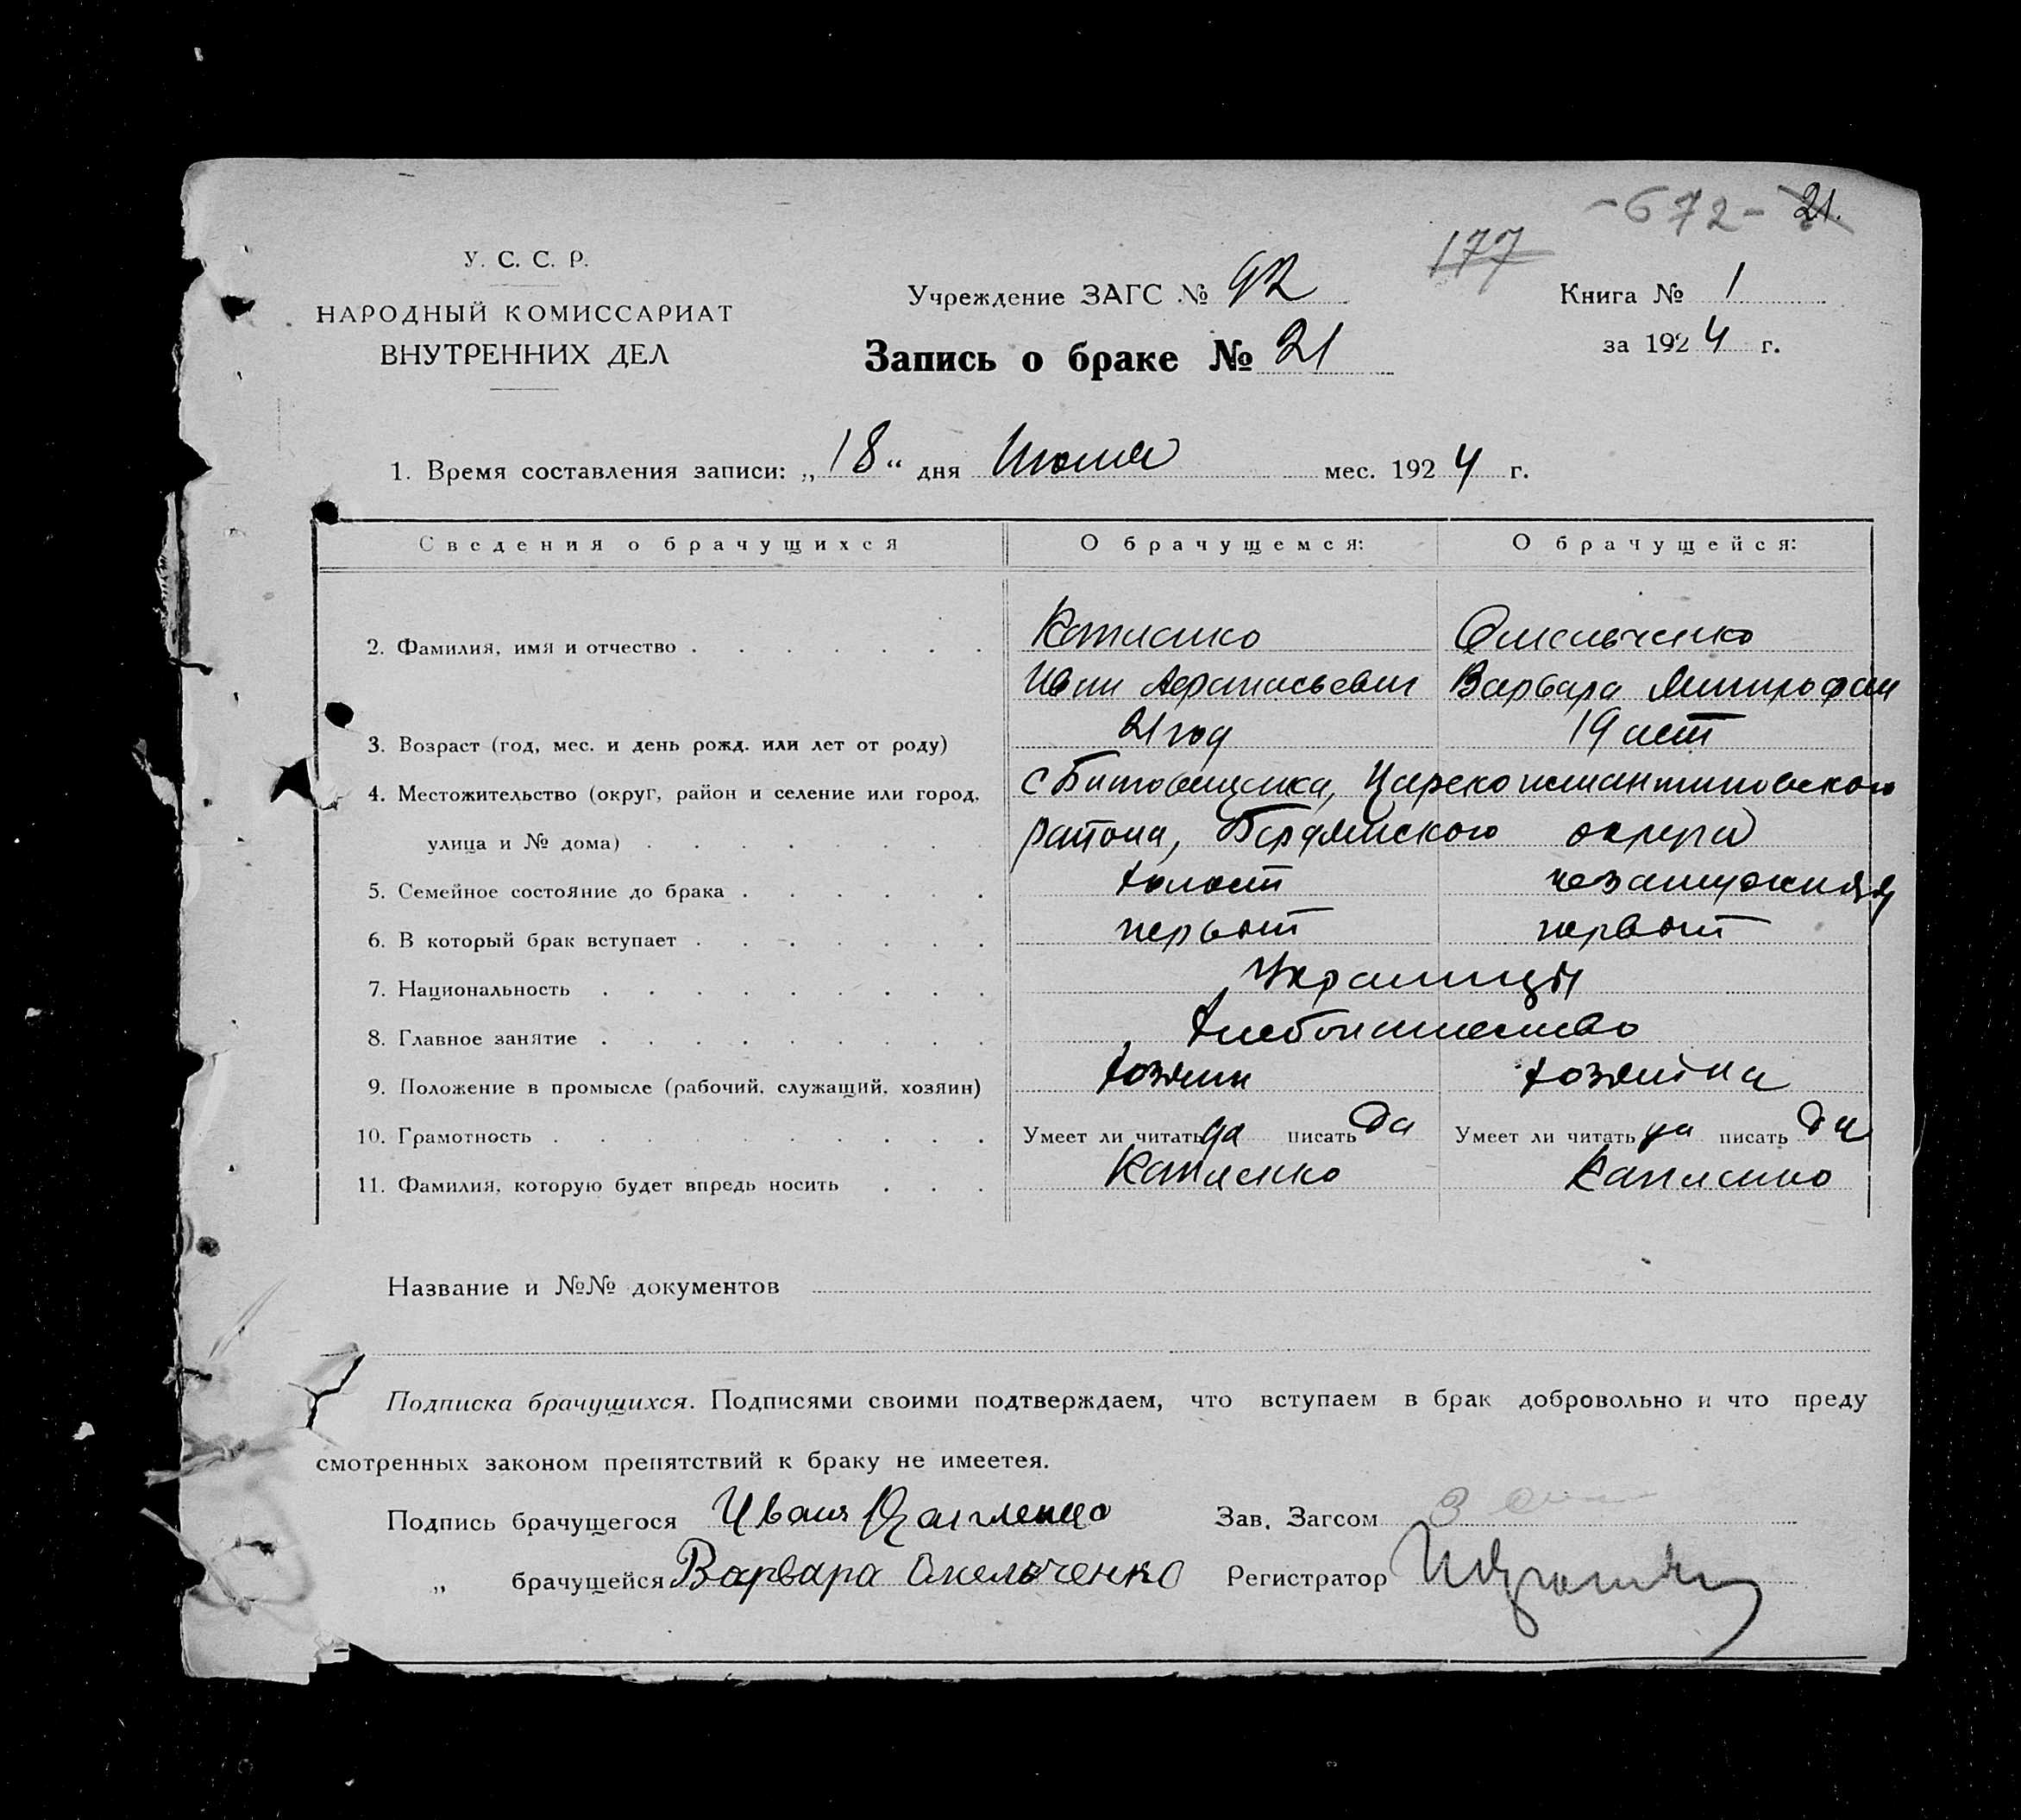 -672- 21.
177
У. С. С. Р.
НАРОДНЫЙ КОМИССАРИАТ
ВНУТРЕННИХ ДЕЛ
Учреждение ЗАГС № 92
Запись о браке № 21
Книга № 1
за 1924 г.
1. Время составления записи: „18“ дня мес. 1924 г.
Сведения о брачущихся О брачущемся: О брачущейся:
2. Фамилия, имя и отчество Омельченко
Иван Афанасьевич Варвара Митрофан
3. Возраст (год, мес. и день рожд. или лет от роду) 21 год 19 лет
4. Местожительство (округ, район и селение или город, Цареконстантиновского
улица и № дома) района, Бердянского округа
5. Семейное состояние до брака холост незамужняя
6. В который брак вступает первый первый
7. Национальность Украинцы
8. Главное занятие Хлебопашество
9. Положение в промысле (рабочий, служащий, хозяин) хозяин хозяйка
10. Грамотность Умеет ли читать да писать да Умеет ли читать да писать да
11. Фамилия, которую будет впредь носить
Название и №№ документов
Подписка брачущихся. Подписями своими подтверждаем, что вступаем в брак добровольно и что преду
смотренных законом препятствий к браку не имеетея.
Подпись брачущегося Иван Зав. Загсом
„ брачущейся Варвара Омельченко Регистратор